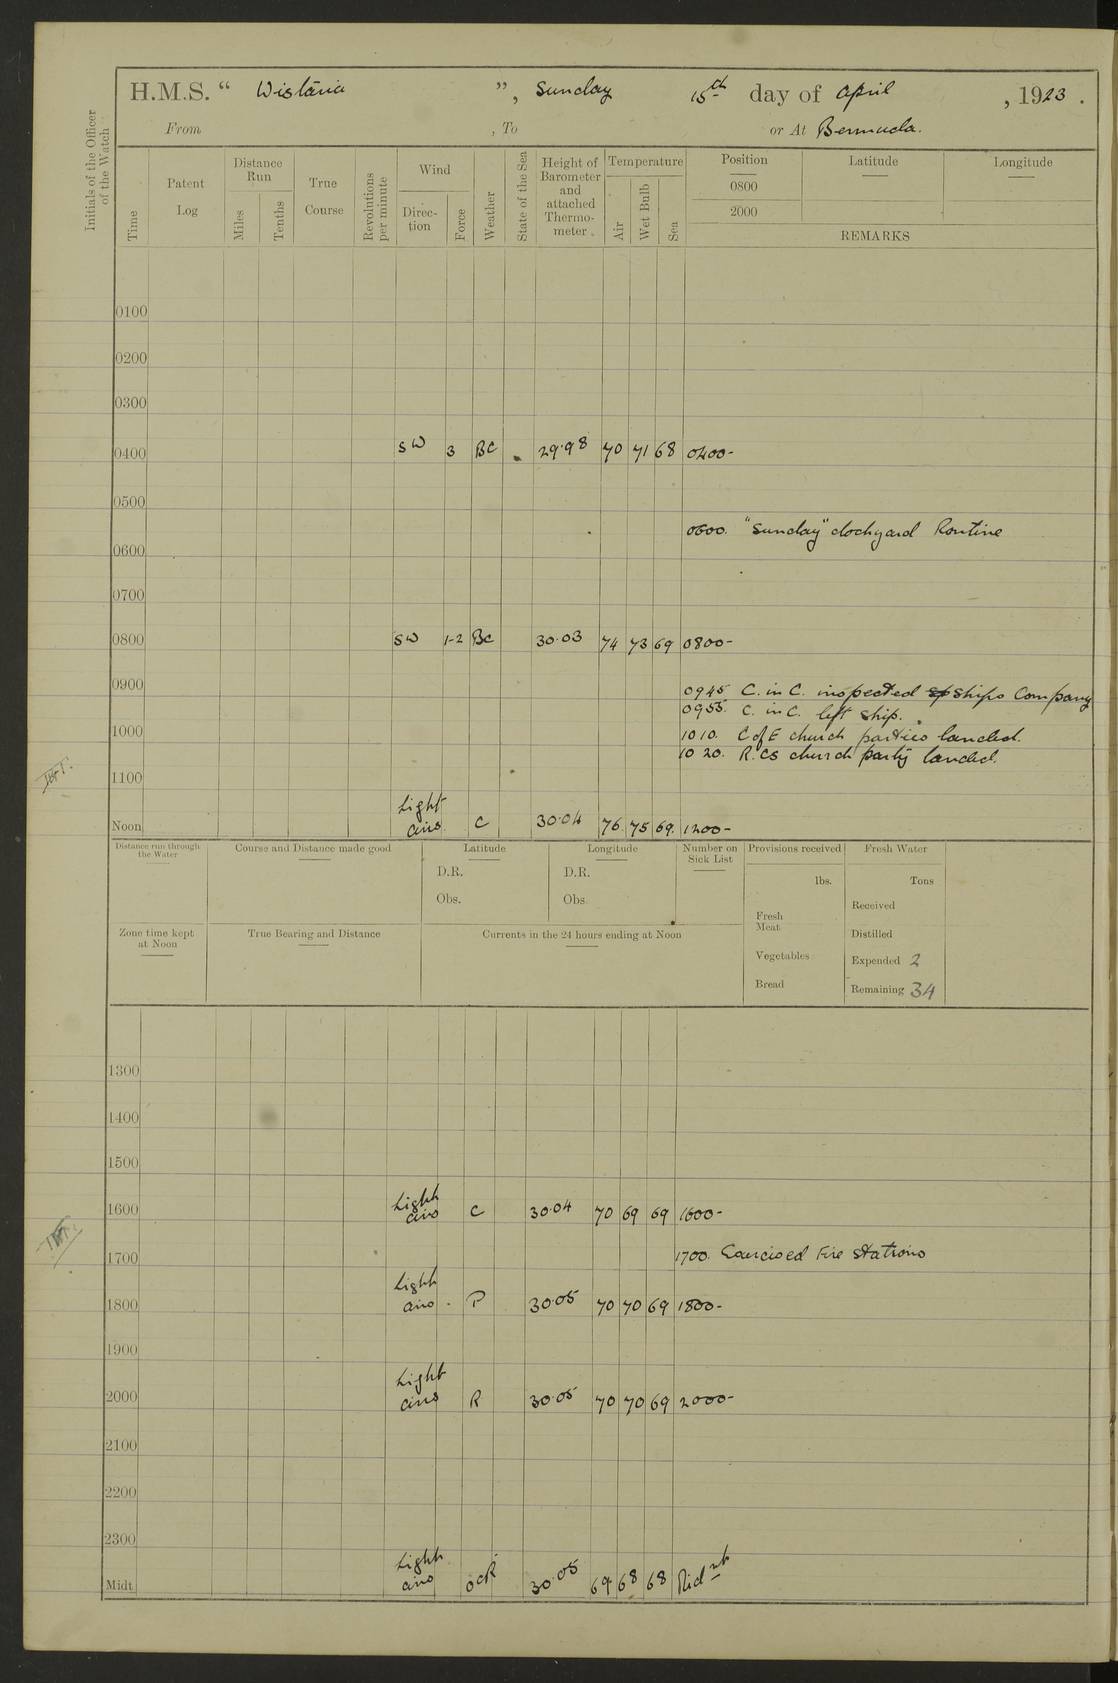 H.M.S. “ Wistaria ”, Sunday 15th day of April, 1923.
From , To or At Bermuda.
Initials of the Officer of the Watch
Time
Patent Log
Distance Run
Miles
Tenths
True Course
Revolutions per minute
Wind
Direction
Force
Weather
State of the Sea
Height of Barometer and attached Thermo-meter.
Temperature
Air
Wet Bulb
Sea
Position Latitude Longitude
0800
2000
REMARKS
0100
0200
0300
0400 SW 3 BC 29.98 70 71 68 0400-
0500
0600. "Sunday" dockyard Routine
0600
0700
0800 SW 1-2 BC 30.03 74 73 69 0800-
0900 0945 C. in C. inspected sp ships Company
0955. C. in C. left ship.
1000 1010. C of E church parties landed.
1020. R.Cs church party landed.
1100
Noon Light airs. C 30.04 76 75 69. 1200-
Distance run through the Water
Course and Distance made good
Latitude
D.R.
Obs.
Longitude
D.R.
Obs.
Number on Sick List
Provisions received
lbs.
Fresh Meat
Vegetables
Bread
Fresh Water
Tons
Received
Distilled
Expended 2
Remaining 34
Zone time kept at Noon
True Bearing and Distance
Currents in the 24 hours ending at Noon
1300
1400
1500
1600 Light airs C 30.04 70 69 69 1600-
1700 1700. Exercised Fire Stations
1800 Light airs. P 30.05 70 70 69 1800-
1900
2000 Light airs R 30.05 70 70 69 2000-
2100
2200
2300
Midt. Light airs ocR 30.05 69 68 68 Midnt